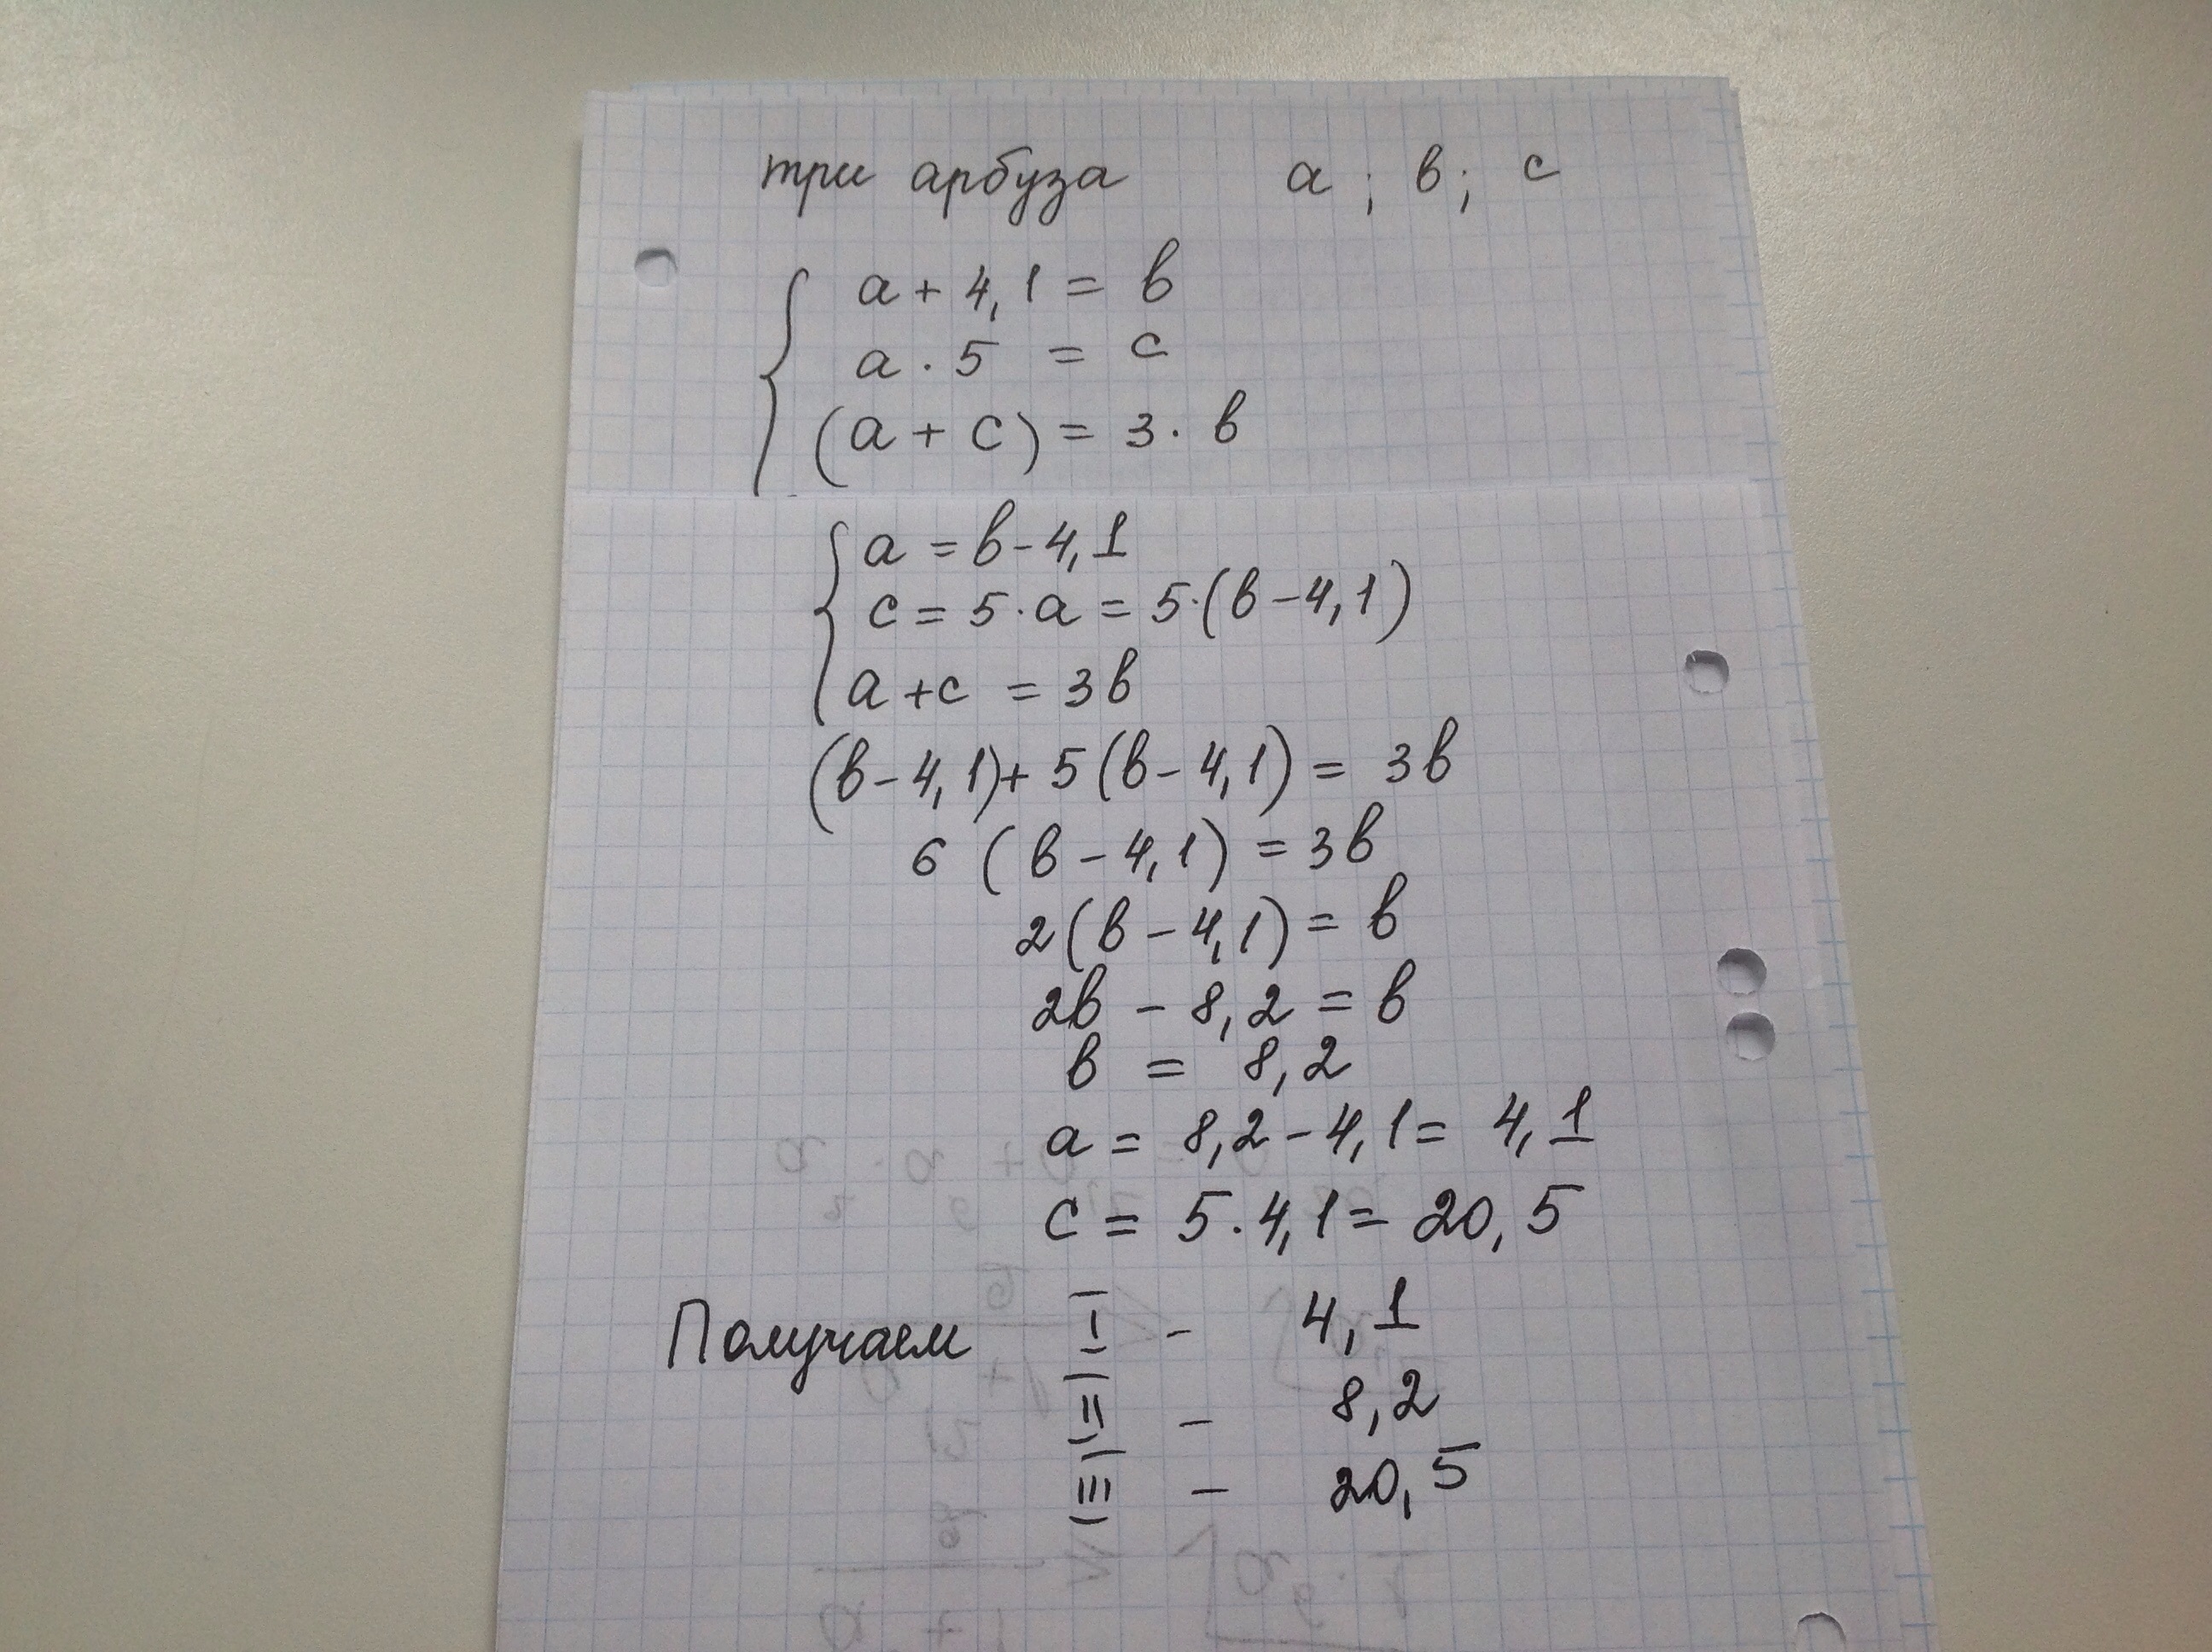 три арбуза a ; в; c
a + 4,1 = в
a · 5 = c
(a + c) = 3 · в
a = в - 4,1
c = 5 · a = 5 · (в - 4,1)
a + c = 3в
(в - 4,1) + 5 (в - 4,1) = 3в
6 (в - 4,1) = 3в
2 (в - 4,1) = в
2в - 8,2 = в
в = 8,2
a = 8,2 - 4,1 = 4,1
c = 5 · 4,1 = 20,5
Получаем I - 4,1
II - 8,2
III - 20,5